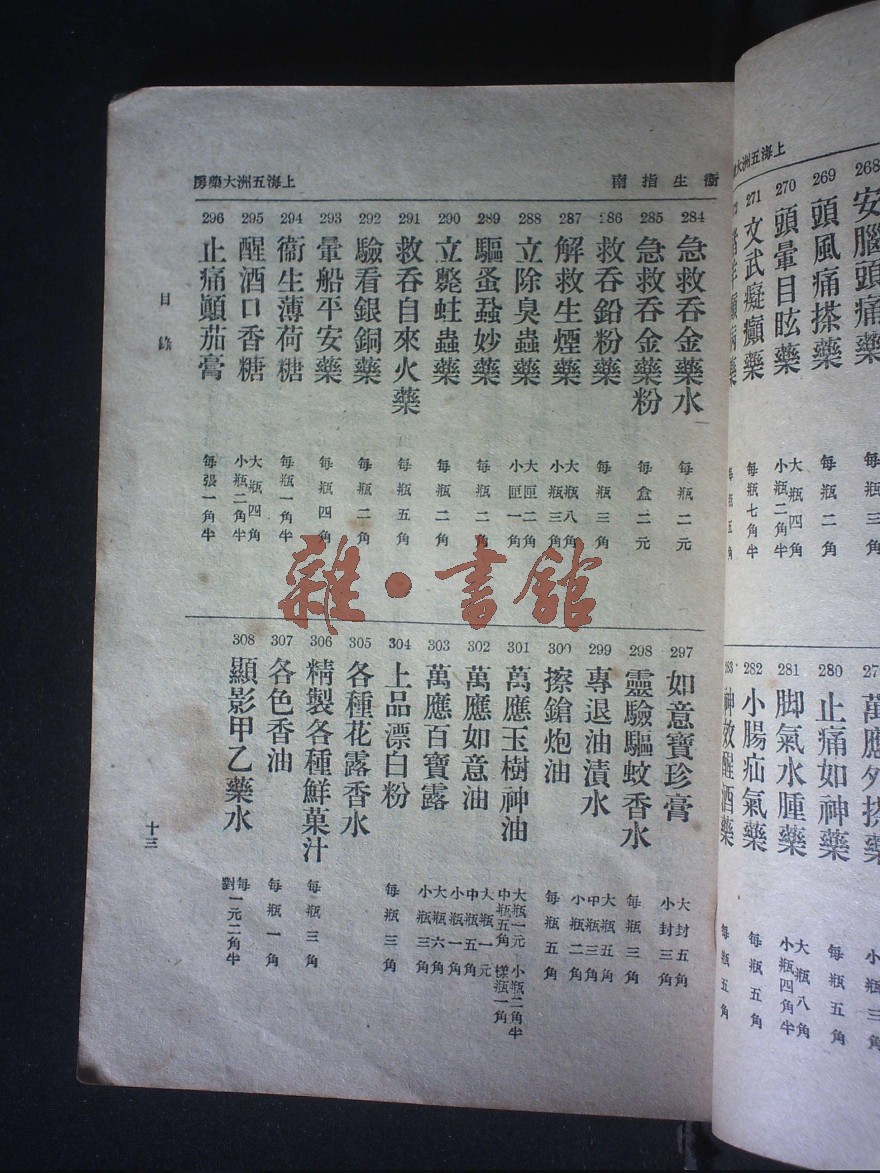 上海五洲大
268
安腦頭痛藥
每瓶三角
269
頭風痛搽藥
每瓶二角
270
頭暈目眩藥
大瓶四角
小瓶二角半
271
文武癡癲藥
每瓶七角半
每瓶五角
萬應外
小瓶三角
280
止痛如神藥
每瓶五角
281
脚氣水腫藥
大瓶八角
小瓶四角半
282
小腸疝氣藥
每瓶五角
283
神效醒酒藥
每瓶五角
衛生指南
上海五洲大藥房
284
急救吞金藥水
每瓶二元
285
急救吞金藥粉
每盒二元
286
救吞鉛粉藥
每瓶三角
287
解救生煙藥
大瓶八角
小瓶三角
288
立除臭蟲藥
大匣二角
小匣一角
289
驅蚤蝨妙藥
每瓶二角
290
立斃蛀蟲藥
每瓶二角
291
救吞自來火藥
每瓶五角
292
驗看銀銅藥
每瓶二角
293
暈船平安藥
每瓶四角
294
衞生薄荷糖
每瓶一角半
295
醒酒口香糖
大瓶四角
小瓶二角半
296
止痛顚茄膏
每張一角半
297
如意寶珍膏
大封五角
小封三角
298
靈驗驅蚊香水
每瓶三角
299
專退油漬水
大瓶五角
中瓶三角
小瓶二角
300
擦鎗炮油
每瓶五角
301
萬應玉樹神油
大瓶一元 小瓶二角半
中瓶五角 樣瓶一角
302
萬應如意油
大瓶一元
中瓶五角
小瓶一角
303
萬應百寶露
大瓶六角
小瓶三角
304
上品漂白粉
每瓶三角
305
各種花露香水
306
精製各種鮮菓汁
每瓶三角
307
各色香油
每瓶一角
308
顯影甲乙藥水
每對一元二角半
目錄
十三
雜·書館